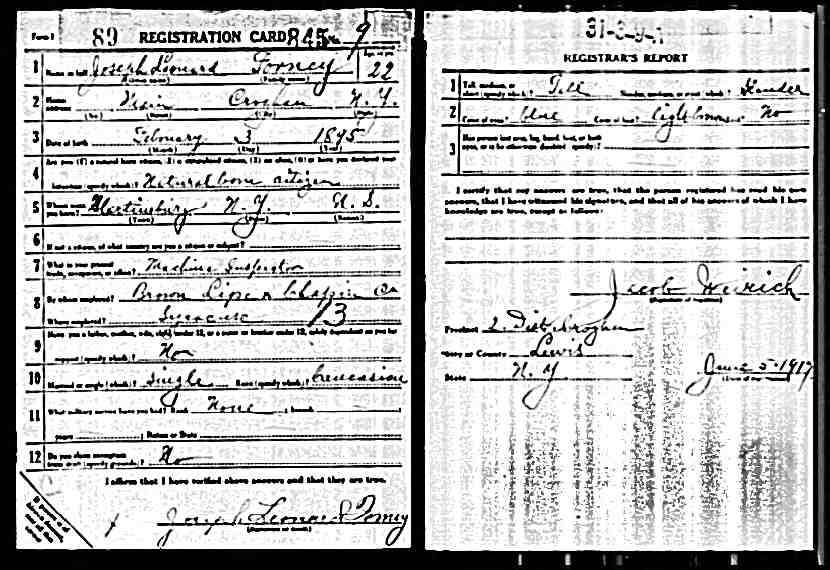 Form 1 89 REGISTRATION CARD 845 No. 9
1 Name in full Joseph Leonard Torney Age, in yrs. 22
(Given name) (Family name)
2 Home address Croghan N.Y.
(No.) (Street) (City) (State)
3 Date of birth February 3 1895
(Month) (Day) (Year)
4 Are you (1) a natural born citizen, (2) a naturalized citizen, (3) an alien, (4) or have you declared your
intention (specify which)? Natural born citizen
5 Where were you born? Martinsburg N.Y. U.S.
(Town) (State) (Nation)
6 If not a citizen, of what country are you a citizen or subject?
7 What is your present trade, occupation, or office? Machine Inspector
8 By whom employed? Brown Lipe & Chapin Co
Where employed? Syracuse 13
9 Have you a father, mother, wife, child under 12, or a sister or brother under 12, solely dependent on you for
support (specify which)? No
10 Married or single (which)? Single Race (specify which)? Caucasion
11 What military service have you had? Rank None ; branch
years ; Nation or State
12 Do you claim exemption from draft (specify grounds)? No
I affirm that I have verified above answers and that they are true.
Joseph Leonard Torney
(Signature or mark)
31-3-9-A
REGISTRAR'S REPORT
1 Tall, medium, or short (specify which)? Tall Slender, medium, or stout (which)? Slender
2 Color of eyes? blue Color of hair? light brown No
3 Has person lost arm, leg, hand, foot, or both
eyes, or is he otherwise disabled (specify)?
I certify that my answers are true, that the person registered has read his own
answers, that I have witnessed his signature, and that all of his answers of which I have
knowledge are true, except as follows:
Jacob Weirich
(Signature of registrar)
Precinct 2. Dist Croghan
City or County Lewis
State N.Y June 5-1917
(Date of registration)